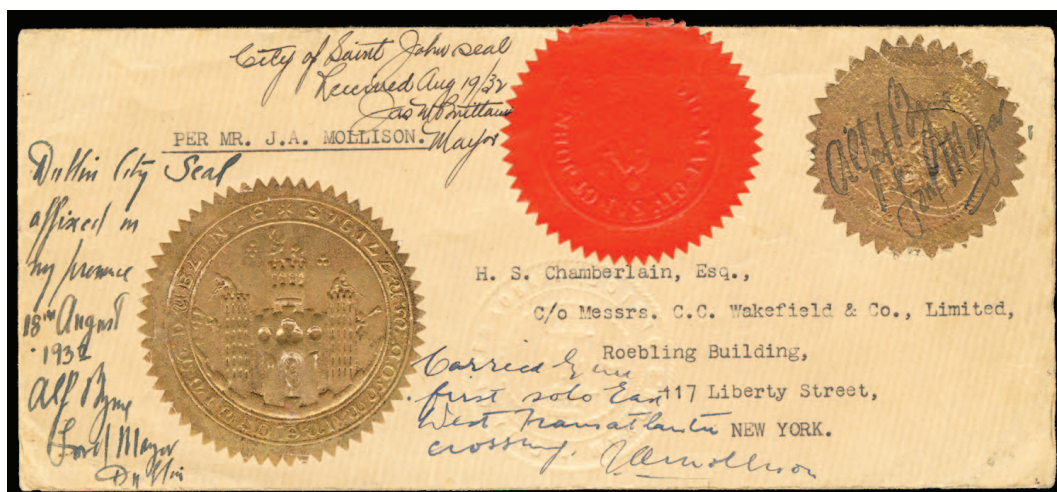 City of Saint John seal
Received Aug 19/32
Mayor
PER MR. J.A. MOLLISON.
Dublin City Seal
affixed in
my presence
18th August
1932
Alf Byrne
Lord Mayor
Dublin
H. S. Chamberlain, Esq.,
C/o Messrs. C.C. Wakefield & Co., Limited,
Roebling Building,
117 Liberty Street,
NEW YORK.
Carried by me
first solo East
West Transatlantic
crossing.
J.A. Mollison